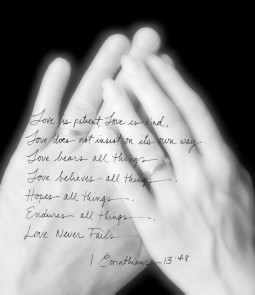 Love is patient, Love is kind,
Love does not insist on its own way
Love bears all things
Love believes all things,
Hopes all things,
Endures all things,
Love Never Fails
1 Corinthians 13:4-8